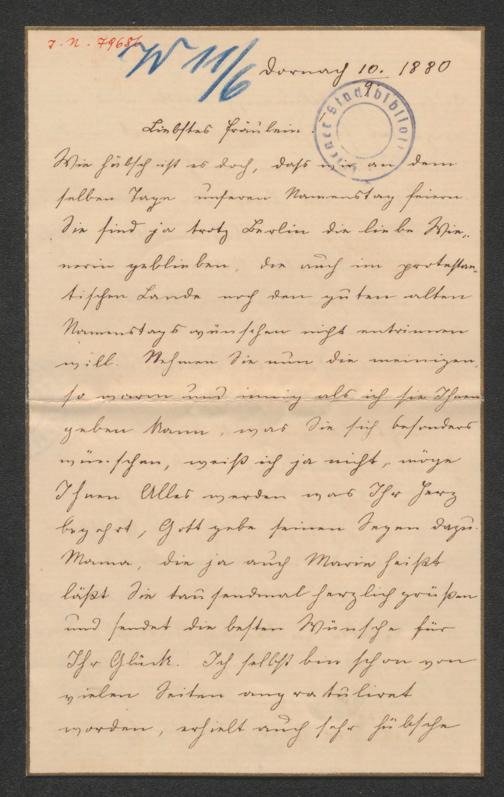 J. N. 79686
W 11/6
Dornach 10. 1880
9.
Wiener Stadtbibliot
Liebstes Fräulein
Wie hübsch ist es doch, dass wir an dem
selben Tage unseren Namenstag feiern
Sie sind ja trotz Berlin die liebe Wie-
nerin geblieben, die auch im protestan-
tischen Lande noch den guten alten
Namenstagswünschen nicht entrinnen
will. Nehmen Sie nun die meinigen,
so warm und innig als ich sie Ihnen
geben kann, was Sie sich besonders
wünschen, weiß ich ja nicht, möge
Ihnen Alles werden was Ihr Herz
begehrt, Gott gebe seinen Segen dazu.
Mama, die ja auch Marie heißt
läßt Sie tausendmal herzlich grüßen
und sendet die besten Wünsche für
Ihr Glück. Ich selbst bin schon von
vielen Seiten angratulirt
worden, erhielt auch sehr hübsche